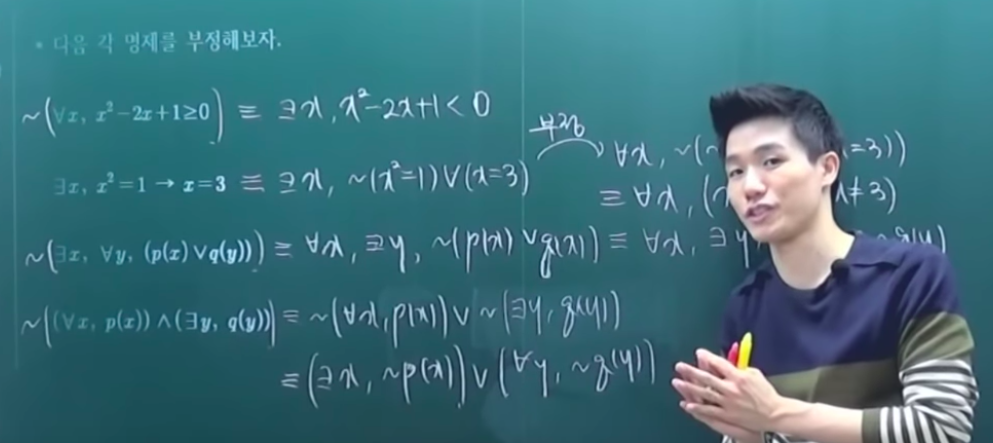 • 다음 각 명제를 부정해보자.
~(∀x, x²-2x+1≥0) ≡ ∃x, x²-2x+1<0
∃x, x²=1 → x=3 ≡ ∃x, ~(x²=1)∨(x=3)
부정
∀x, ~(~ =3))
≡ ∀x, ( x≠3)
~(∃x, ∀y, (p(x)∨q(y))) ≡ ∀x, ∃y, ~(p(x)∨q(x)) ≡ ∀x, ∃y q(y)
~((∀x, p(x))∧(∃y, q(y))) ≡ ~(∀x, p(x))∨~(∃y, q(y))
≡ (∃x, ~p(x))∨(∀y, ~q(y))